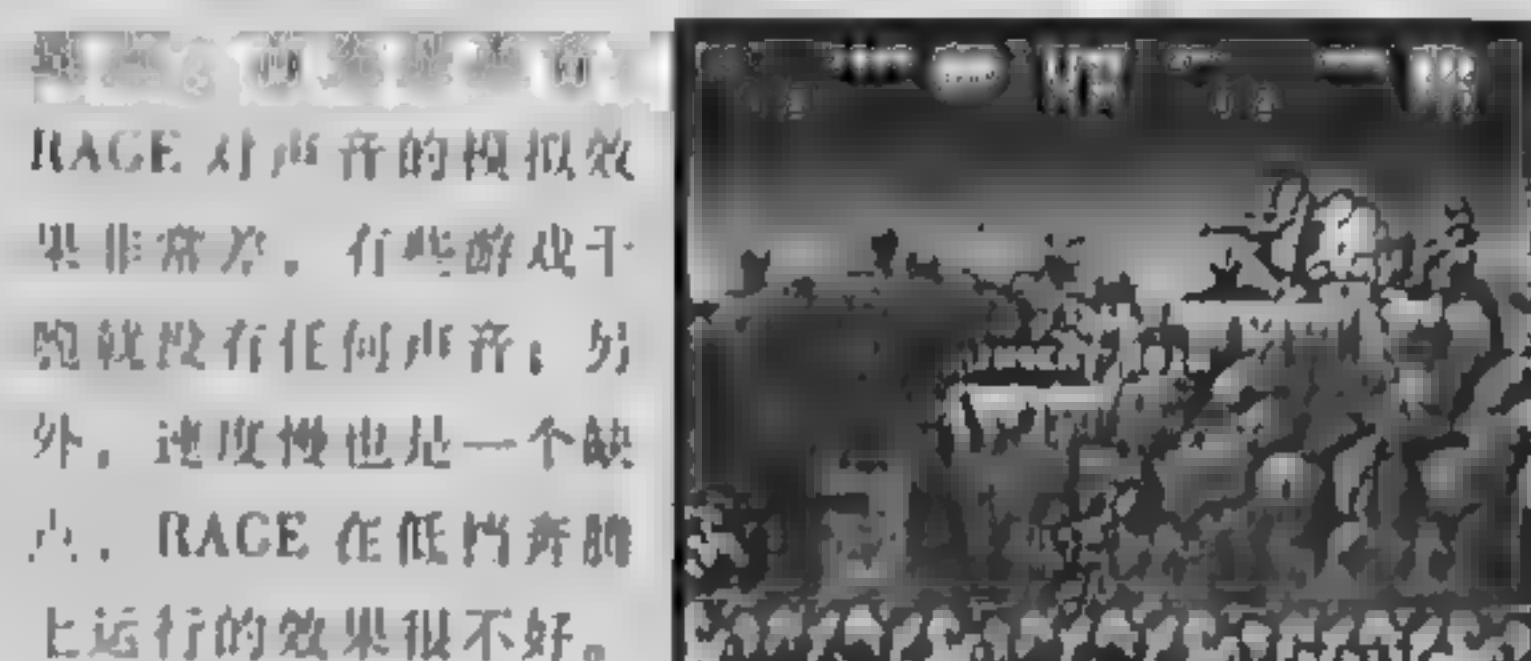 RAGE 对声音的模拟效
果非常差，有些游戏干
脆就没有任何声音；另
外，速度慢也是一个缺
点，RAGE 在低档奔腾
上运行的效果很不好。